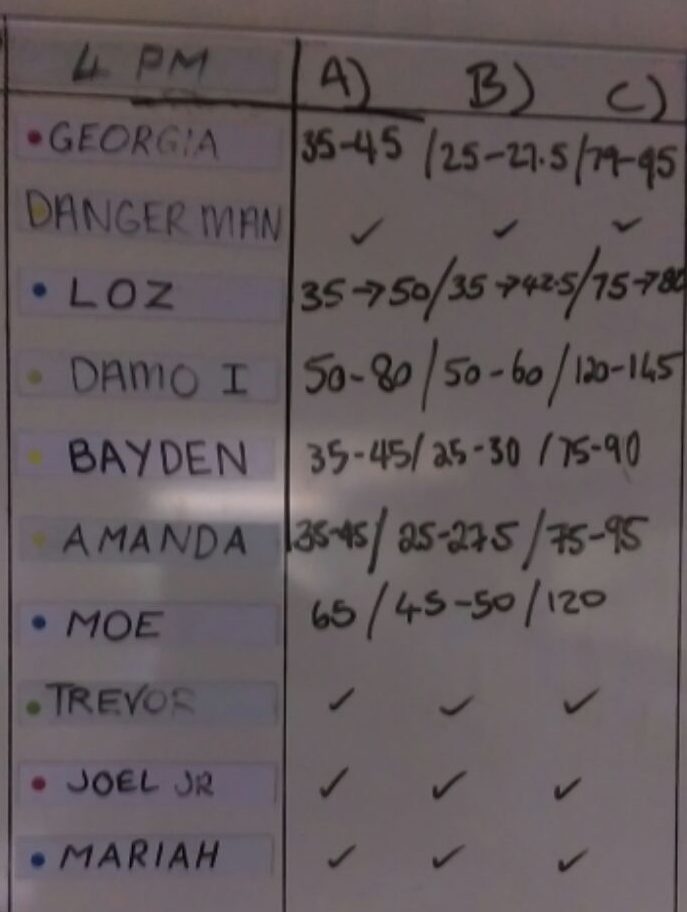 4 PM A) B) C)
• GEORGIA 35-45 / 25-27.5 / 79-95
DANGER MAN ✓ ✓ ✓
• LOZ 35→50 / 35→42.5 / 75→80
• DAMO I 50-80 / 50-60 / 120-145
• BAYDEN 35-45 / 25-30 / 75-90
• AMANDA 35-45 / 25-27.5 / 75-95
• MOE 65 / 45-50 / 120
• TREVOR ✓ ✓ ✓
• JOEL JR ✓ ✓ ✓
• MARIAH ✓ ✓ ✓